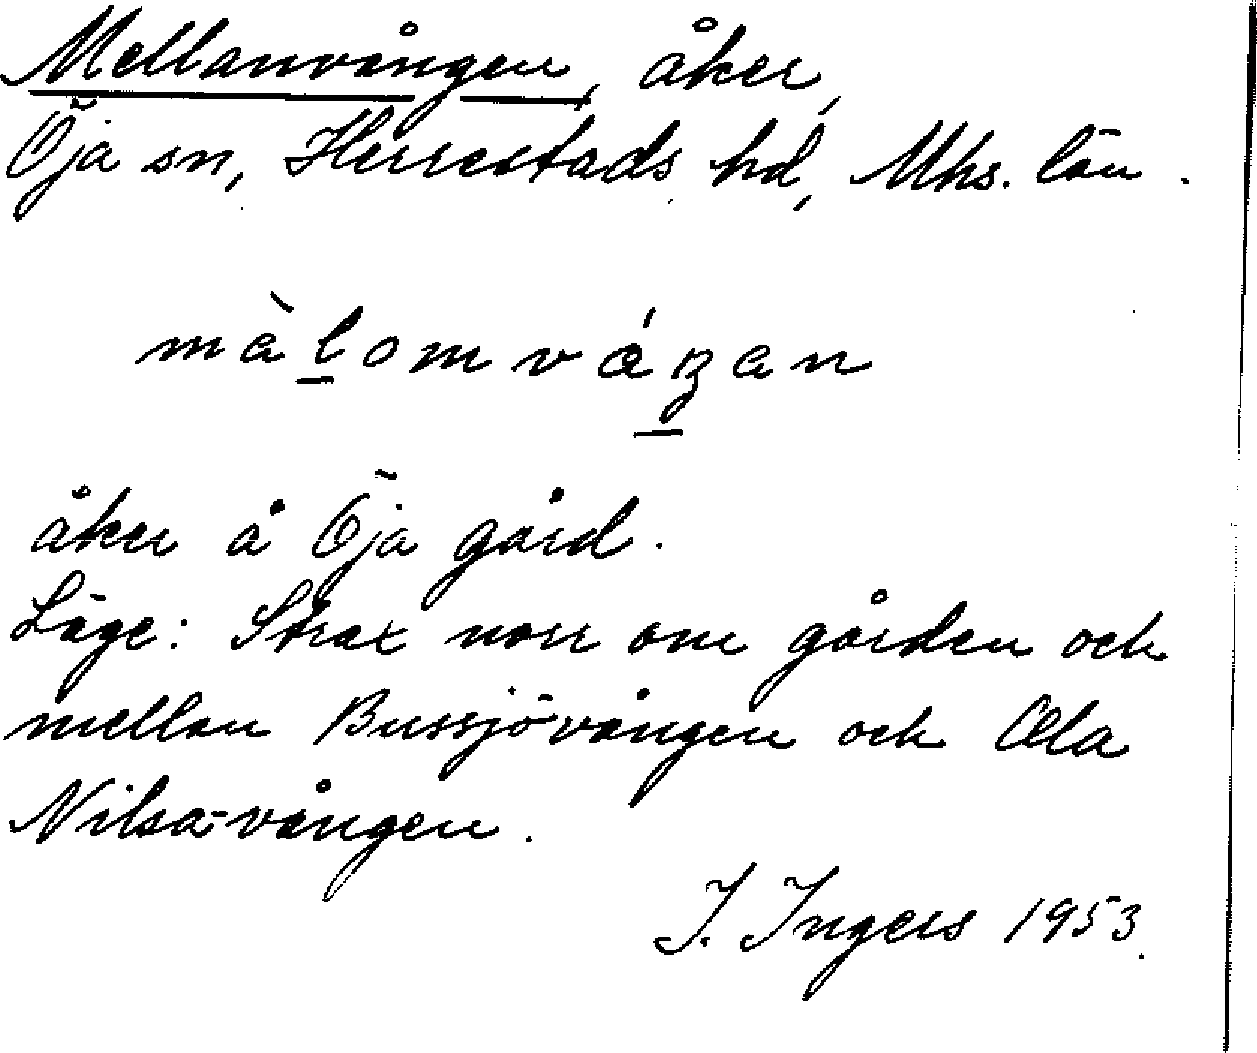 Mellanvången, åker,
Öja sn, Herrestads hd, Mhs. län.
åker å Öja gård.
Läge: Strax norr om gården och
mellan Bussjövången och Ola
Nilsa-vången.
I. Ingers 1953.